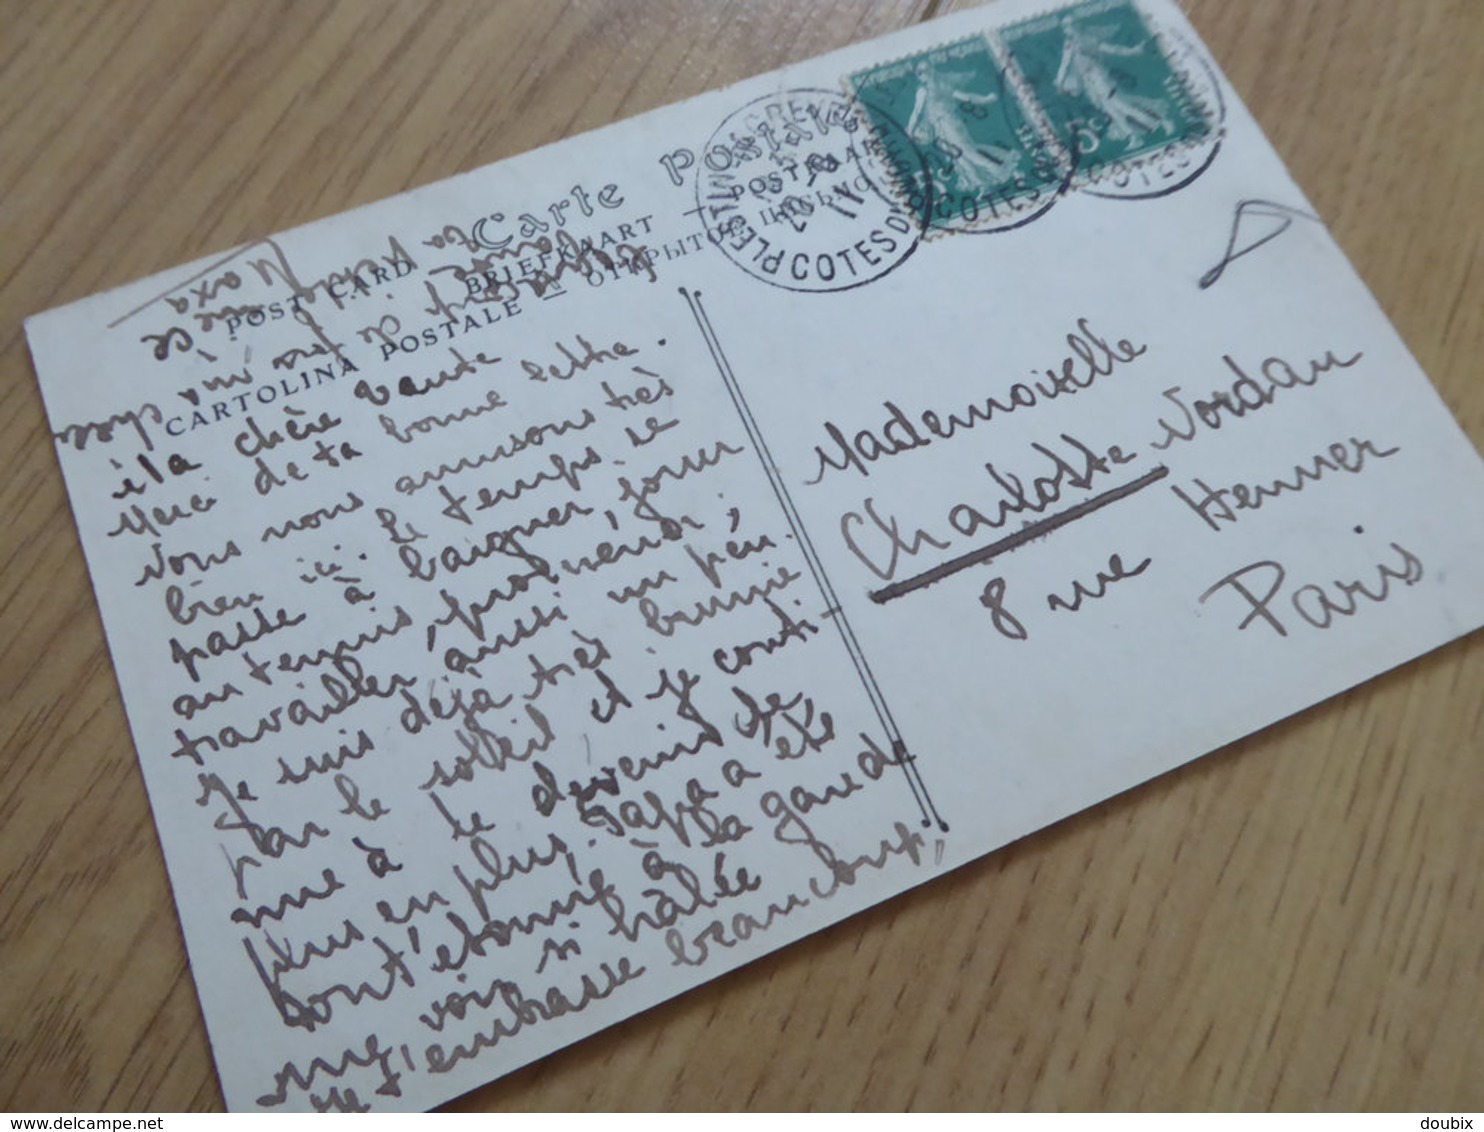 Carte Postale
POST CARD — BRIEFKAART — POSTKAART
CARTOLINA POSTALE — ОТКРЫТОЕ ПИСЬМО
PLESTIN-LES-GRÈVES
COTES DU NORD
chère
Merci de ta bonne lettre.
Nous nous amusons très
bien ici. Le temps se
passe à baigner, jouer
au tennis, promener,
travailler aussi un peu.
Je suis déjà très brunie
par le soleil et je conti-
nue à le devenir de
plus en plus. Papa a été
tout étonné à la gare de
me voir si hâlée
Je t'embrasse beaucoup,
Mademoiselle
Charlotte Nordau
8 rue Henner
Paris
delcampe.net
doubix